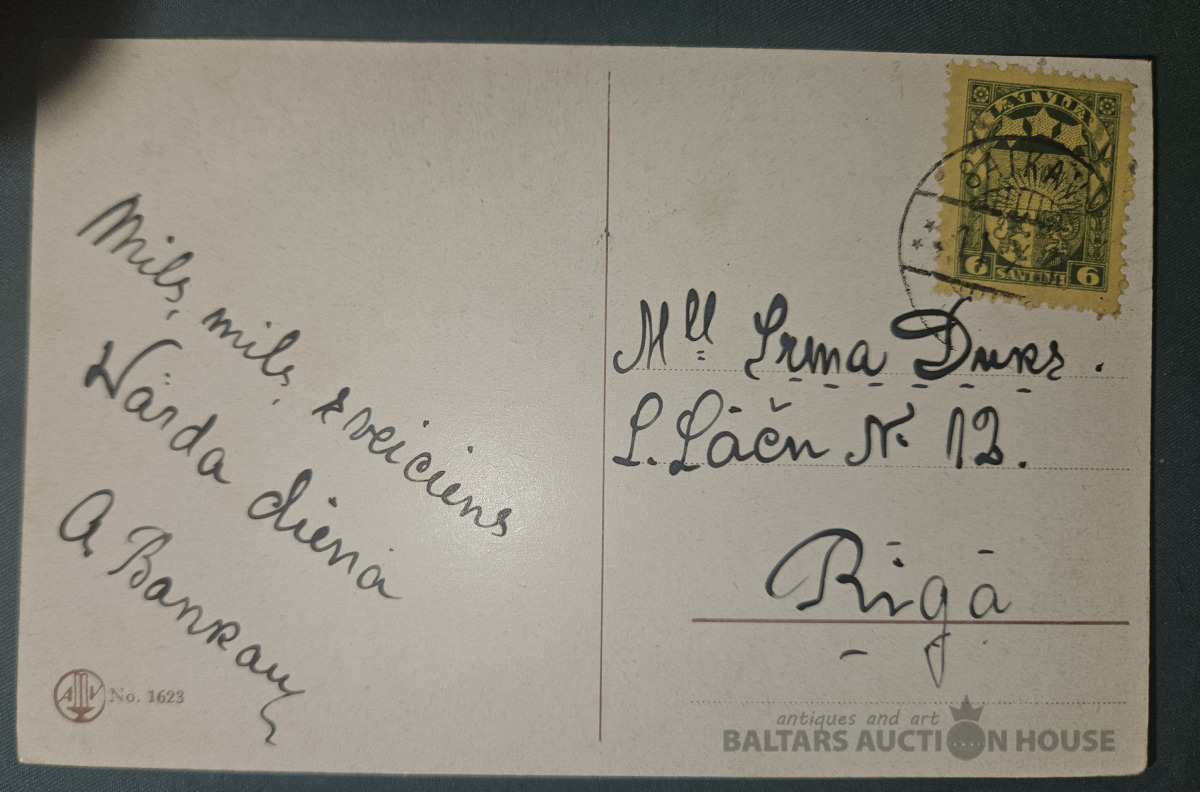 Mīļš, mīļš, sveiciens
Wārda dienā
A. Bankav
AMV No. 1623
LATVIJA
6 SANTIMI 6
Mll Irma Duks.
L. Lāčn N. 12.
Rīgā
antiques and art
BALTARS AUCTION HOUSE